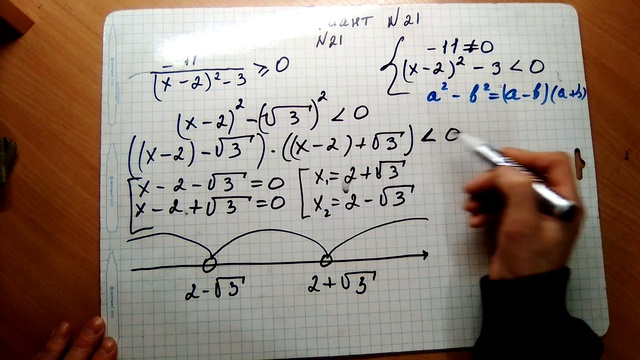 иант N21
N21
-11/((x-2)²-3) ≥ 0
{ -11≠0
(x-2)² - 3 < 0
a² - b² = (a-b)(a+b)
(x-2)² - (√3)² < 0
((x-2)-√3)·((x-2)+√3) < 0
[ x-2-√3=0 [ x₁=2+√3
x-2+√3=0 x₂=2-√3
2-√3 2+√3